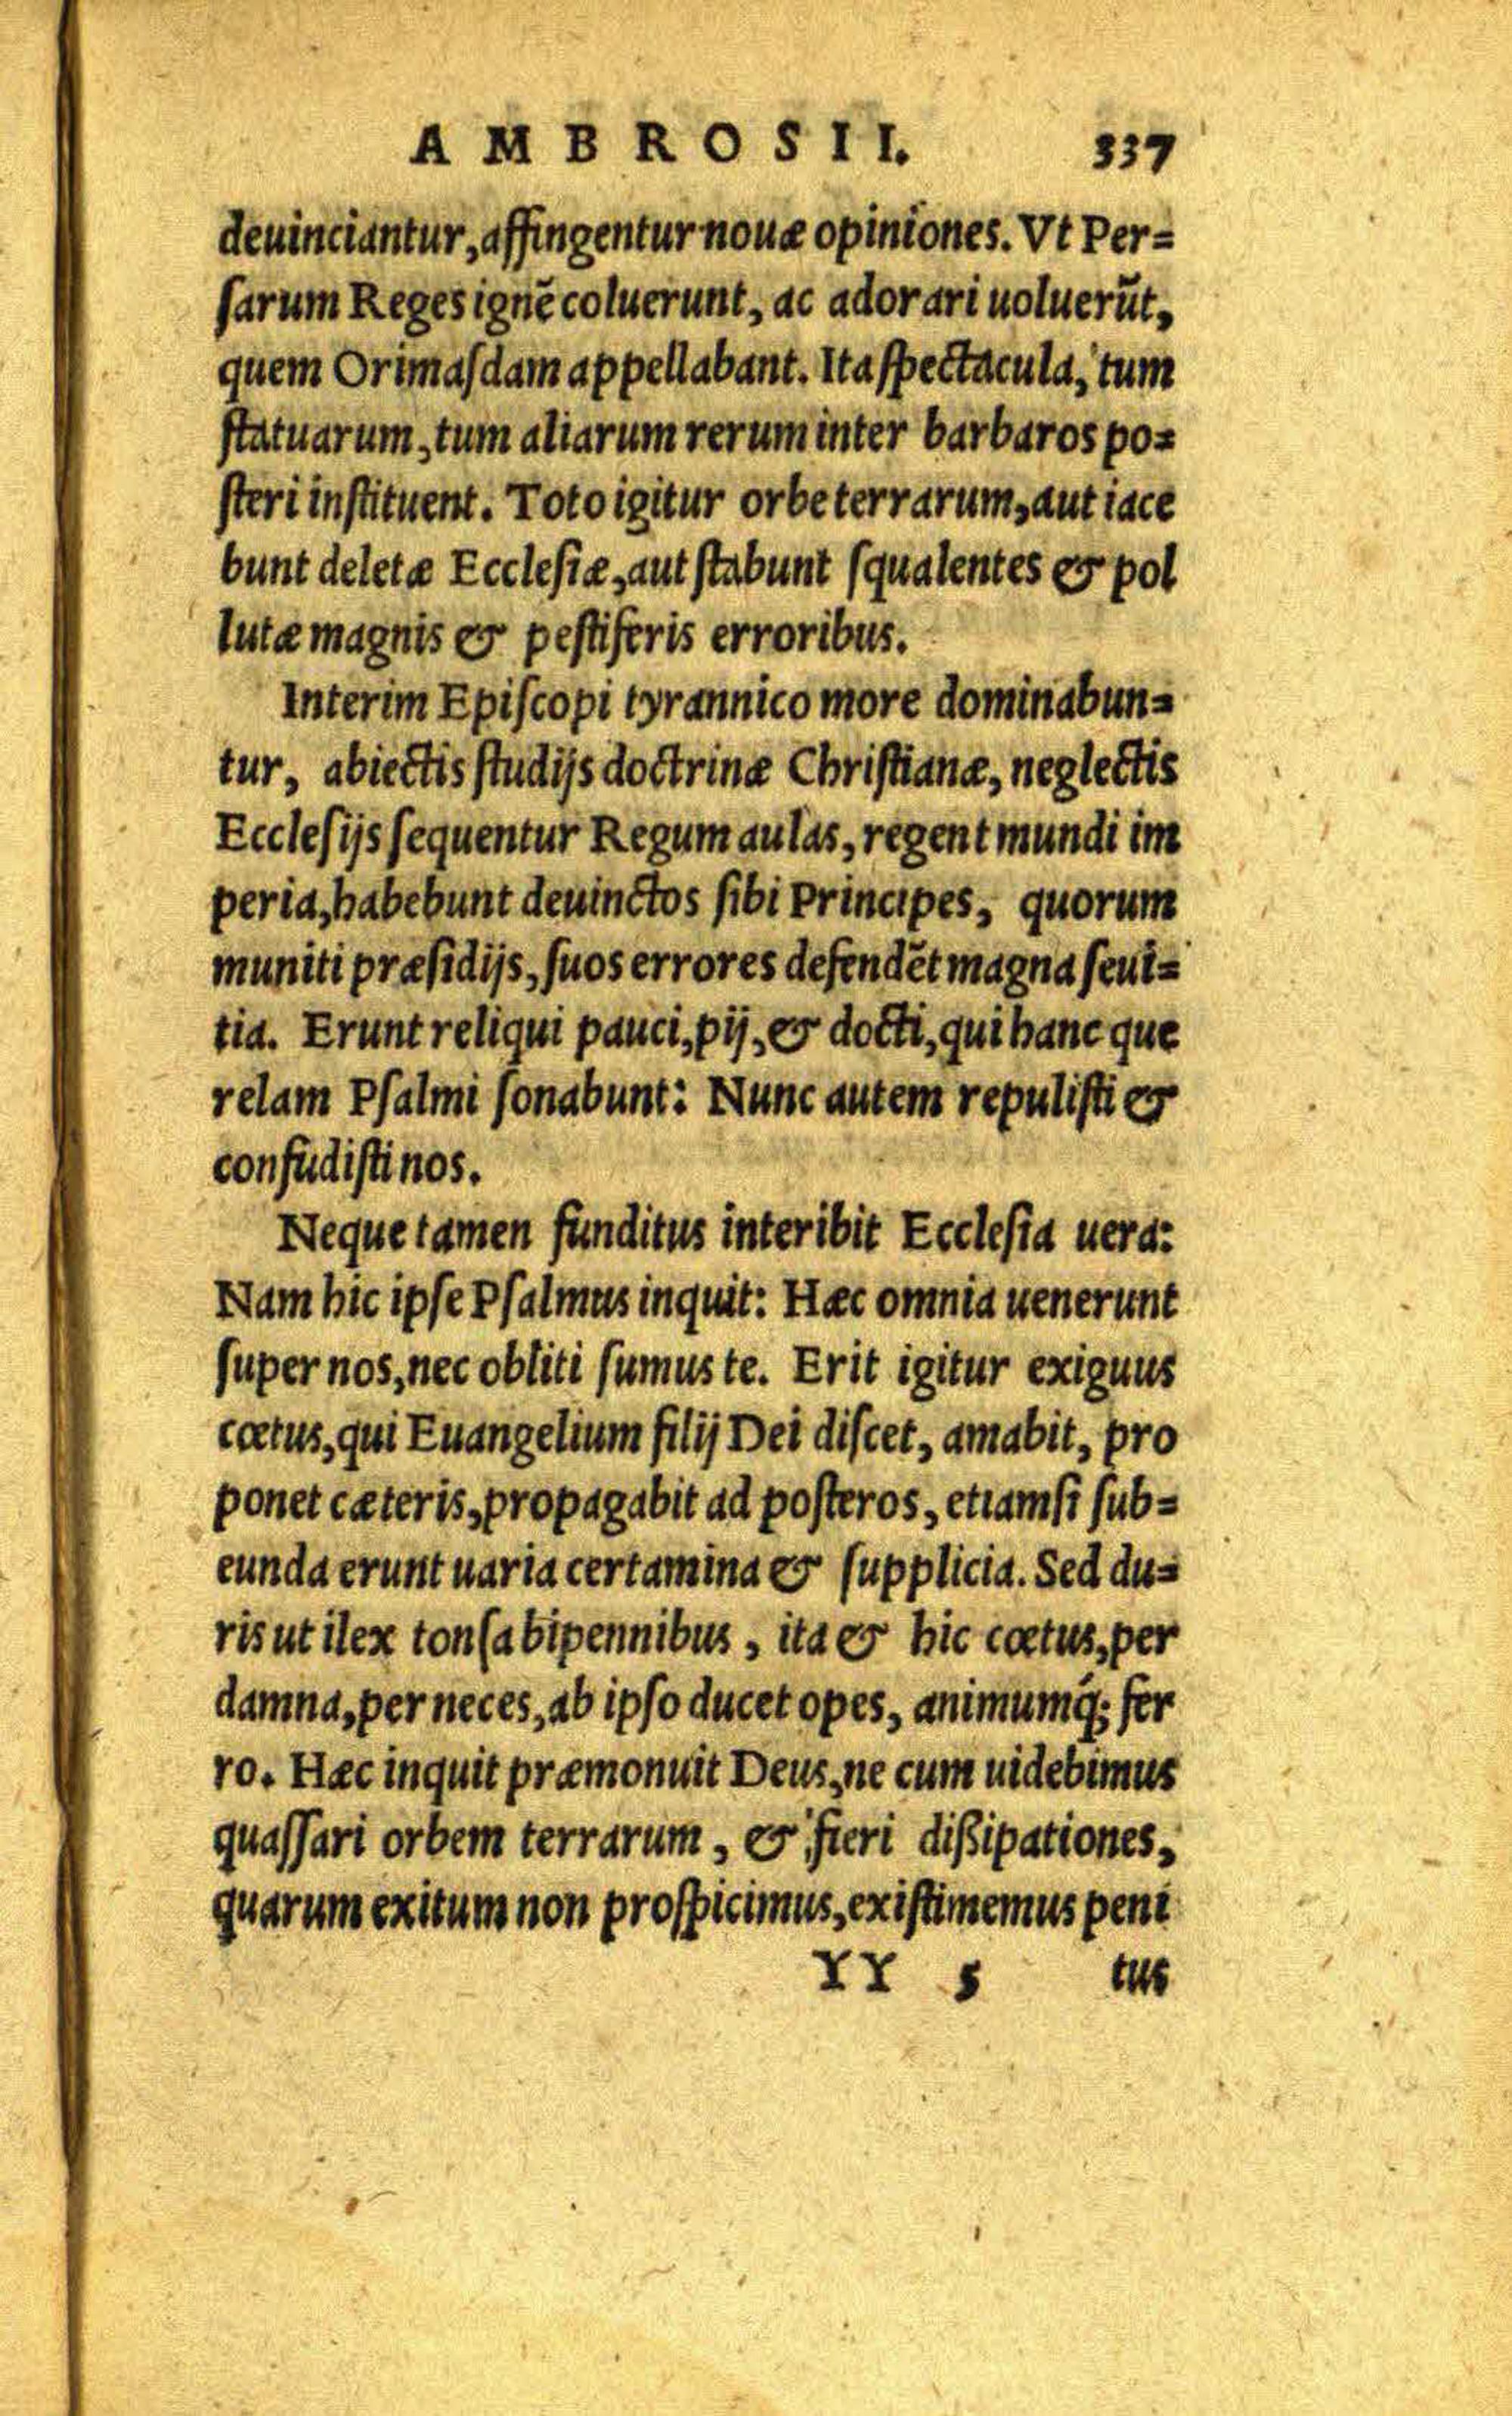 AMBROSII. 337
deuinciantur, affingentur nouæ opiniones. Vt Per=
ſarum Reges ignē coluerunt, ac adorari uoluerūt,
quem Orimaſdam appellabant. Ita ſpectacula, tum
ſtatuarum, tum aliarum rerum inter barbaros po=
ſteri inſtituent. Toto igitur orbe terrarum, aut iace
bunt deletæ Eccleſiæ, aut ſtabunt ſqualentes & pol
lutæ magnis & peſtiferis erroribus.
Interim Epiſcopi tyrannico more dominabun=
tur, abiectis ſtudijs doctrinæ Chriſtianæ, neglectis
Eccleſijs ſequentur Regum aulas, regent mundi im
peria, habebunt deuinctos ſibi Principes, quorum
muniti præſidijs, ſuos errores defendēt magna ſeui=
tia. Erunt reliqui pauci, pij, & docti, qui hanc que
relam Pſalmi ſonabunt: Nunc autem repuliſti &
confudiſti nos.
Neque tamen funditus interibit Eccleſia uera:
Nam hic ipſe Pſalmus inquit: Hæc omnia uenerunt
ſuper nos, nec obliti ſumus te. Erit igitur exiguus
cœtus, qui Euangelium filij Dei diſcet, amabit, pro
ponet cæteris, propagabit ad poſteros, etiamſi ſub=
eunda erunt uaria certamina & ſupplicia. Sed du=
ris ut ilex tonſa bipennibus, ita & hic cœtus, per
damna, per neces, ab ipſo ducet opes, animumq́; fer
ro. Hæc inquit præmonuit Deus, ne cum uidebimus
quaſſari orbem terrarum, & fieri dißipationes,
quarum exitum non proſpicimus, exiſtimemus peni
YY 5 tus